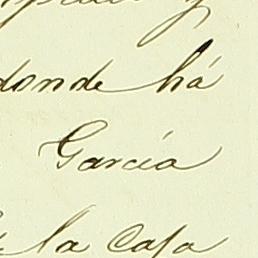 donde há
García
la casa